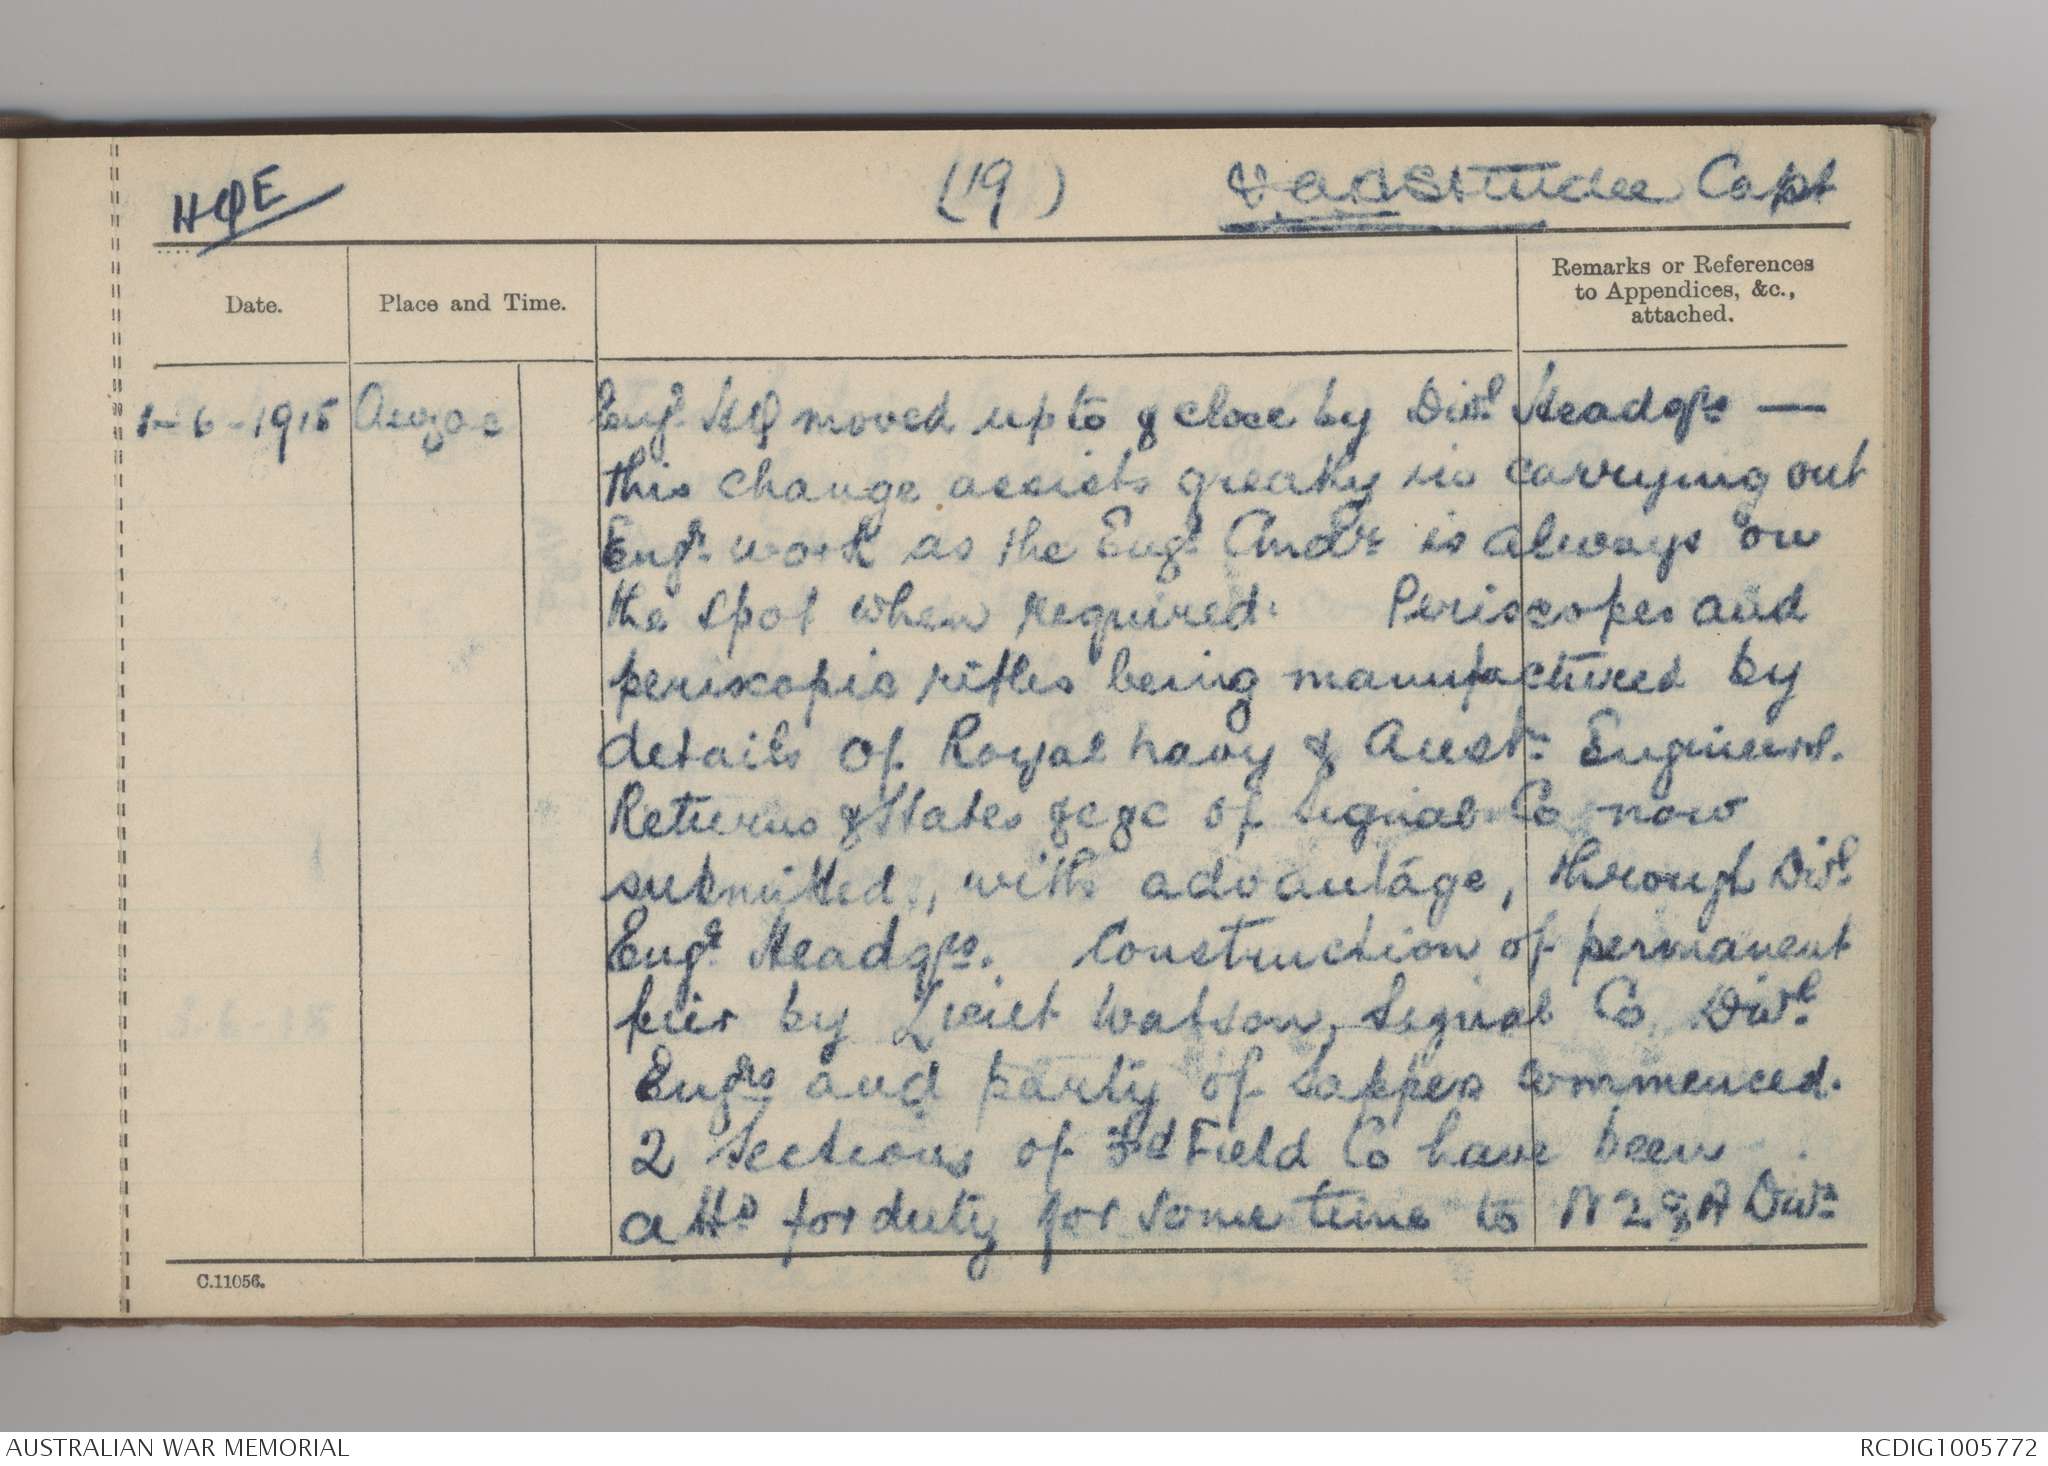 HQE (19) Capt
Date. Place and Time. Remarks or References
to Appendices, &c.,
attached.
1-6-1915 Anzac Engr HQ moved up to & close by Divl Headqrs —
this change assists greatly in carrying out
Engr work as the Engr Cmdr is always on
the spot when required. Periscopes and
periscopic rifles being manufactured by
details of Royal Navy & Austn Engineers.
Returns & States &c &c of Signal Co now
submitted, with advantage, through Divl
Engr Headqrs. Construction of permanent
pier by Lieut Watson, Signal Co Divl
Engrs and party of Sappers commenced.
2 Sections of 3rd Field Co have been
attd for duty for some time to NZ & A Divn
C.11056.
AUSTRALIAN WAR MEMORIAL RCDIG1005772